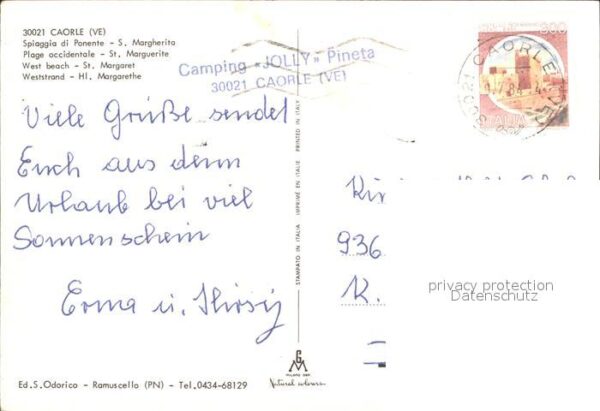 30021 CAORLE (VE)
Spiaggia di Ponente - S. Margherita
Plage occidentale - St. Marguerite
West beach - St. Margaret
Weststrand - Hl. Margarethe
Camping «JOLLY» Pineta
30021 CAORLE (VE)
30021 CAORLE (VE)
ITALIA
Viele Grüße sendet
Euch aus dem
Urlaub bei viel
Sonnenschein
Erma u.
936
K.
privacy protection
Datenschutz
STAMPATO IN ITALIA IMPRIMÉ EN ITALIE PRINTED IN ITALY
GM
MILANO
Natural colours
Ed. S. Odorico - Ramuscello (PN) - Tel. 0434-68129